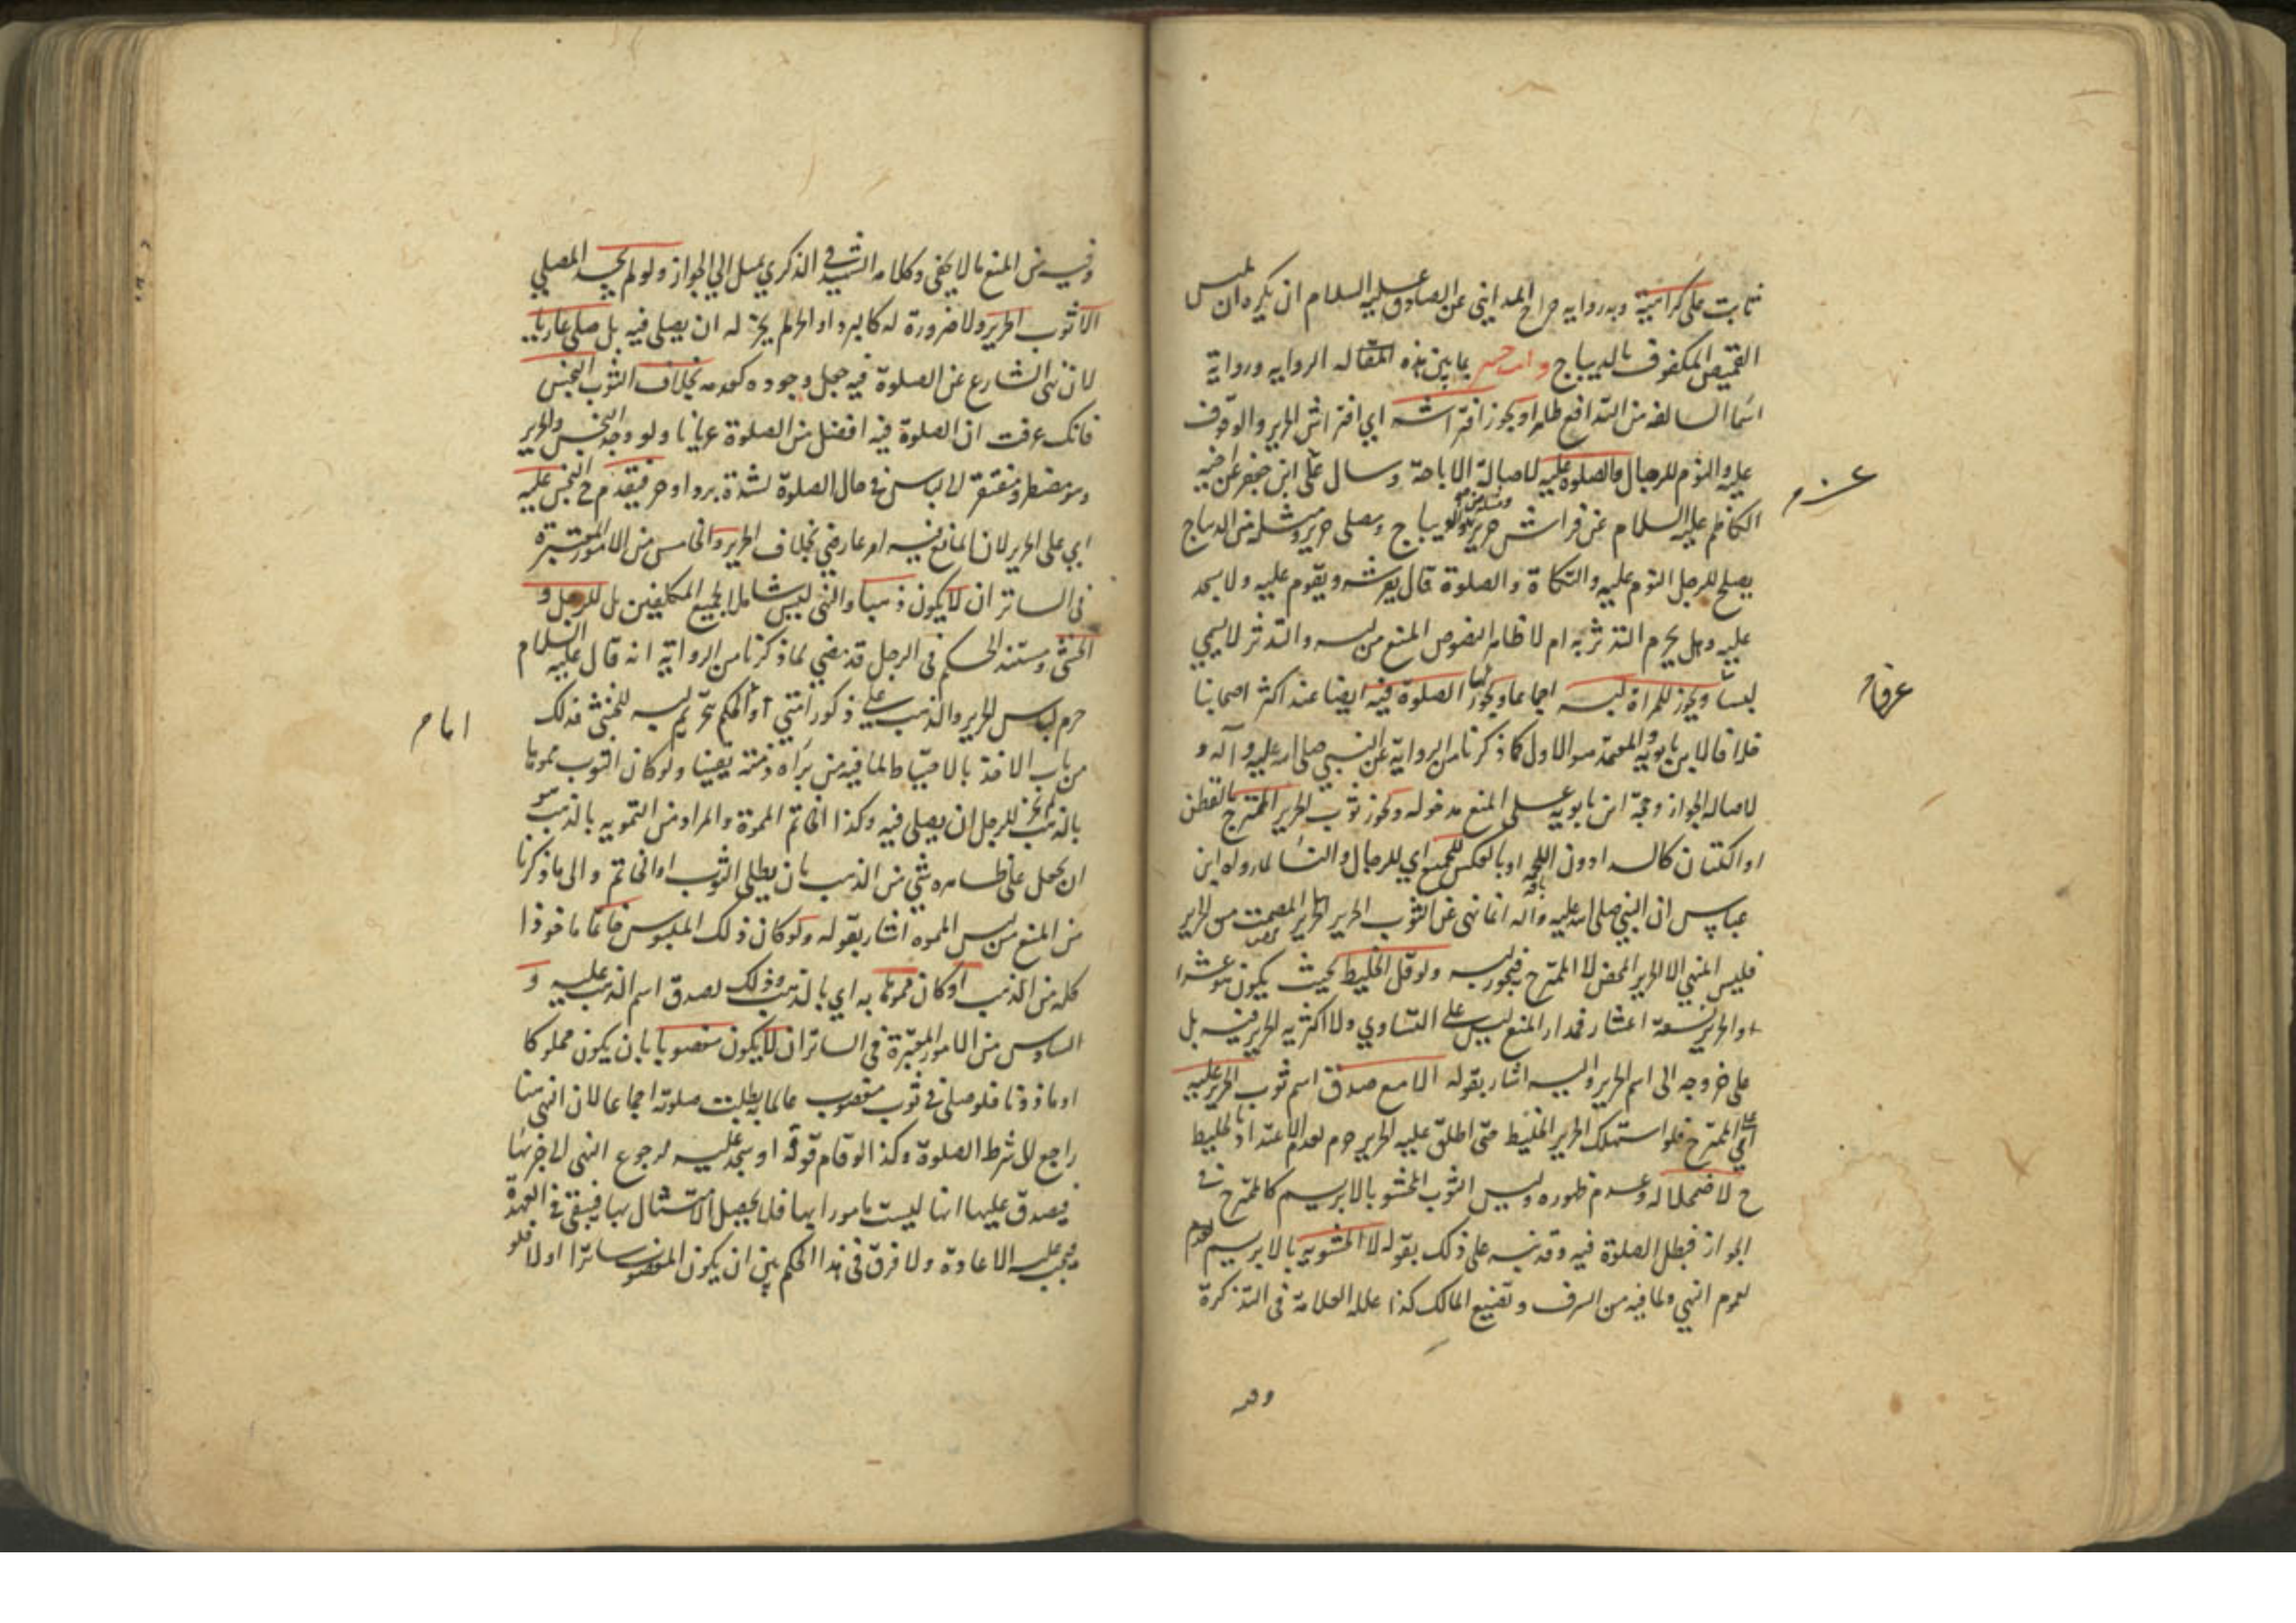 ثابت على كراهية وبه رواية جراح المدايني عن الصادق عليه السلام ان يكره ان يلبس
القميص المكفوف بالديباج وانت خبير بما بين هذه المقاله الروايه ورواية
اسما السالفه من التدافع ظاهرا ويجوز افتراشه اي افتراش الحرير والوقوف
عليه والنوم للرجال والصلوة عليه لاصالة الاباحة وسال على ابن جعفر عن اخيه
الكاظم عليه السلام عن فراش حرير ومثله من الديباج ومصلى حرير ومثله من الديباج
يصلح للرجل النوم عليه والتكاة والصلوة قال يفرشه ويقوم عليه ولا يسجد
عليه وهل يحرم التدثر به ام لا ظاهر النصوص المنع من لبسه والتدثر لا يسمى
لبسا ويجوز للمراة لبسه اجماعا ويجوز لها الصلوة فيه ايضا عند اكثر اصحابنا
خلافا لابن بابويه والمعتمد هو الاول كما ذكرنا من الرواية عن النبي صلى الله عليه وآله و
لاصالة الجواز وحجة ابن بابويه على المنع مدخوله ويجوز ثوب الحرير الممتزج بالقطن
او الكتان كالسدا دون اللحمة او بالعكس للجميع اي للرجال والنسا لما رواه ابن
عباس ان النبي صلى الله عليه وآله انما نهى عن الثوب الحرير المصمت من الحرير
فليس المنهي الا الحرير المحض لا الممتزج فيجوز لبسه ولو قل الخليط بحيث يكون عشرا
والحرير تسعة اعشار فمدار المنع ليس على التساوي ولا اكثرية الحرير فيه بل
على خروجه الى اسم الحرير واليه اشار بقوله الا مع صدق اسم ثوب الحرير عليه
اي على الممتزج فلو استهلك الحرير الخليط حتى اطلق عليه الحرير حرم لعدم الاعتداد بالخليط
ح لاضمحلاله وعدم ظهوره وليس الثوب المحشو بالابريسم كالممتزج في
الجواز فبطل الصلوة فيه وقد نبه على ذلك بقوله لا المحشو به بالابريسم
لعموم النهي ولما فيه من السرف وتضييع المالك كذا علله العلامة في التذكرة
وفيه
عرفا م
وفيه من المنع ما لا يخفى وكلامه الشهيد في الذكرى يميل الى الجواز ولو لم يجد المصلي
الا ثوب الحرير ولا ضرورة له كالبرد او الحر لم يجز له ان يصلي فيه بل صلى عاريا
لان نهى الشارع عن الصلوة فيه جعل وجوده كعدمه بخلاف الثوب النجس
فانك عرفت ان الصلوة فيه افضل من الصلوة عريانا ولو وجد النجس والحرير
وهو مضطر ومفتقر الى لباس في حال الصلوة لشدة برد او حر فيقدم ح النجس عليه
اي على الحرير لان المانع فيه امر عارضي بخلاف الحرير والخامس من الامور المعتبرة
في الساتر ان لا يكون ذهبا والنهي ليس شاملا لجميع المكلفين بل للرجل و
الخنثى ومستند الحكم في الرجل قد مضى لما ذكرنا من الرواية انه قال عليه السلام
حرم لباس الحرير والذهب على ذكور امتي واما الحكم بتحريم لبسه للخنثى فذلك
من باب الاخذ بالاحتياط لما فيه من براة ذمته يقينا ولو كان الثوب مموها
بالذهب لم يجز للرجل ان يصلي فيه وكذا الخاتم المموة والمراد من التمويه بالذهب هو
ان يجعل على ظاهره شي من الذهب بان يطلى الثوب او الخاتم والى ما ذكرنا
من المنع من لبس المموه اشار بقوله ولو كان ذلك الملبوس خاتما ماخوذا
كله من الذهب او كان مموها به اي بالذهب وذلك لصدق اسم الذهب عليه و
السادس من الامور المعتبرة في الساتر ان لا يكون مغصوبا بان يكون مملوكا
او ماذونا فلو صلى في ثوب مغصوب عالما به بطلت صلوته اجماعا لان النهي هنا
راجع الى شرط الصلوة وكذا لو قام فوقه او سجد عليه لرجوع النهي الى جزئها
فيصدق عليها انها ليست مامورا بها فلا يحصل الامتثال بها فيبقى في العهدة
فيجب عليه الاعادة ولا فرق في هذا الحكم بين ان يكون المغصوب ساترا او لا فلو
اما م